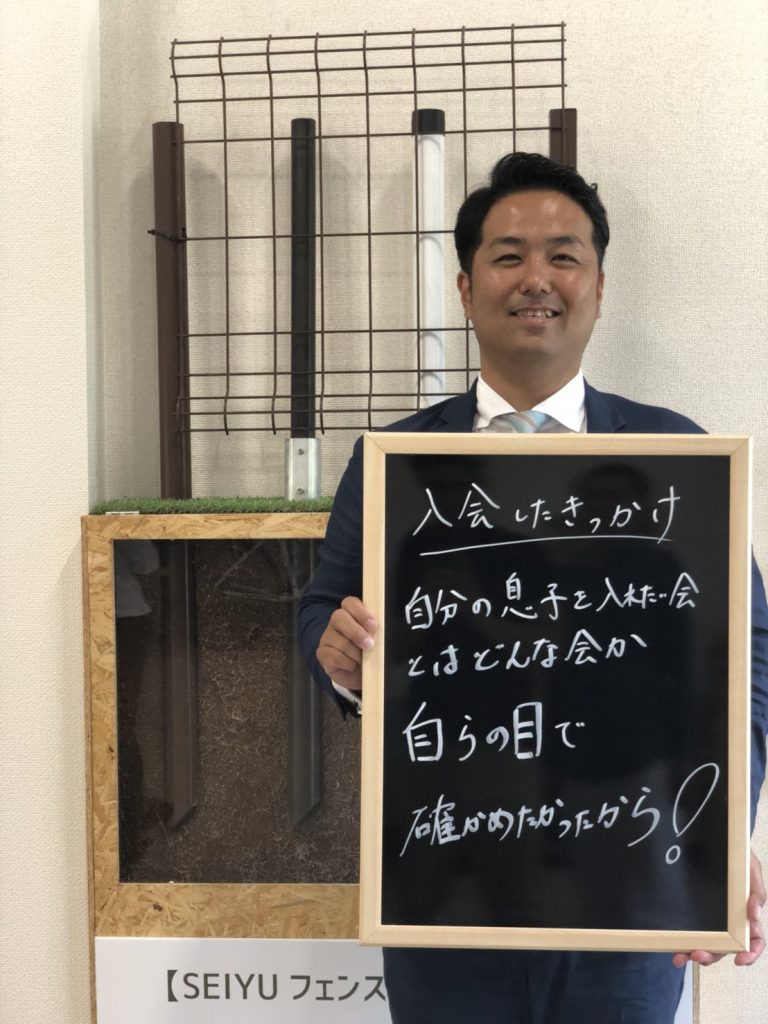 入会したきっかけ
自分の息子を入れたい会
とはどんな会か
自らの目で
確かめたかったから!
【SEIYU フェンス